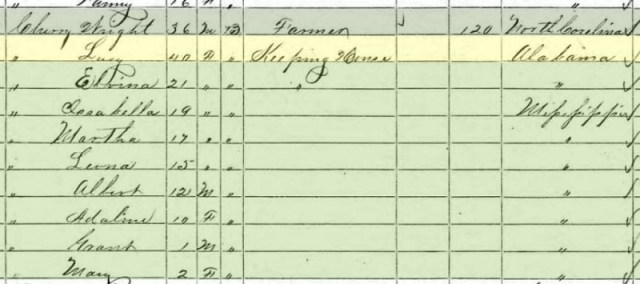 " Fanny 16 " "
Cherry Wright 36 M B Farmer 120 North Carolina
" Lucy 40 F " Keeping House Alabama
" Elvina 21 " " " "
" Issabella 19 " " Mississippi
" Martha 17 " " "
" Leona 15 " " "
" Albert 12 M " "
" Adaline 10 F " "
" Grant 1 M " "
" Mary 2 F " "